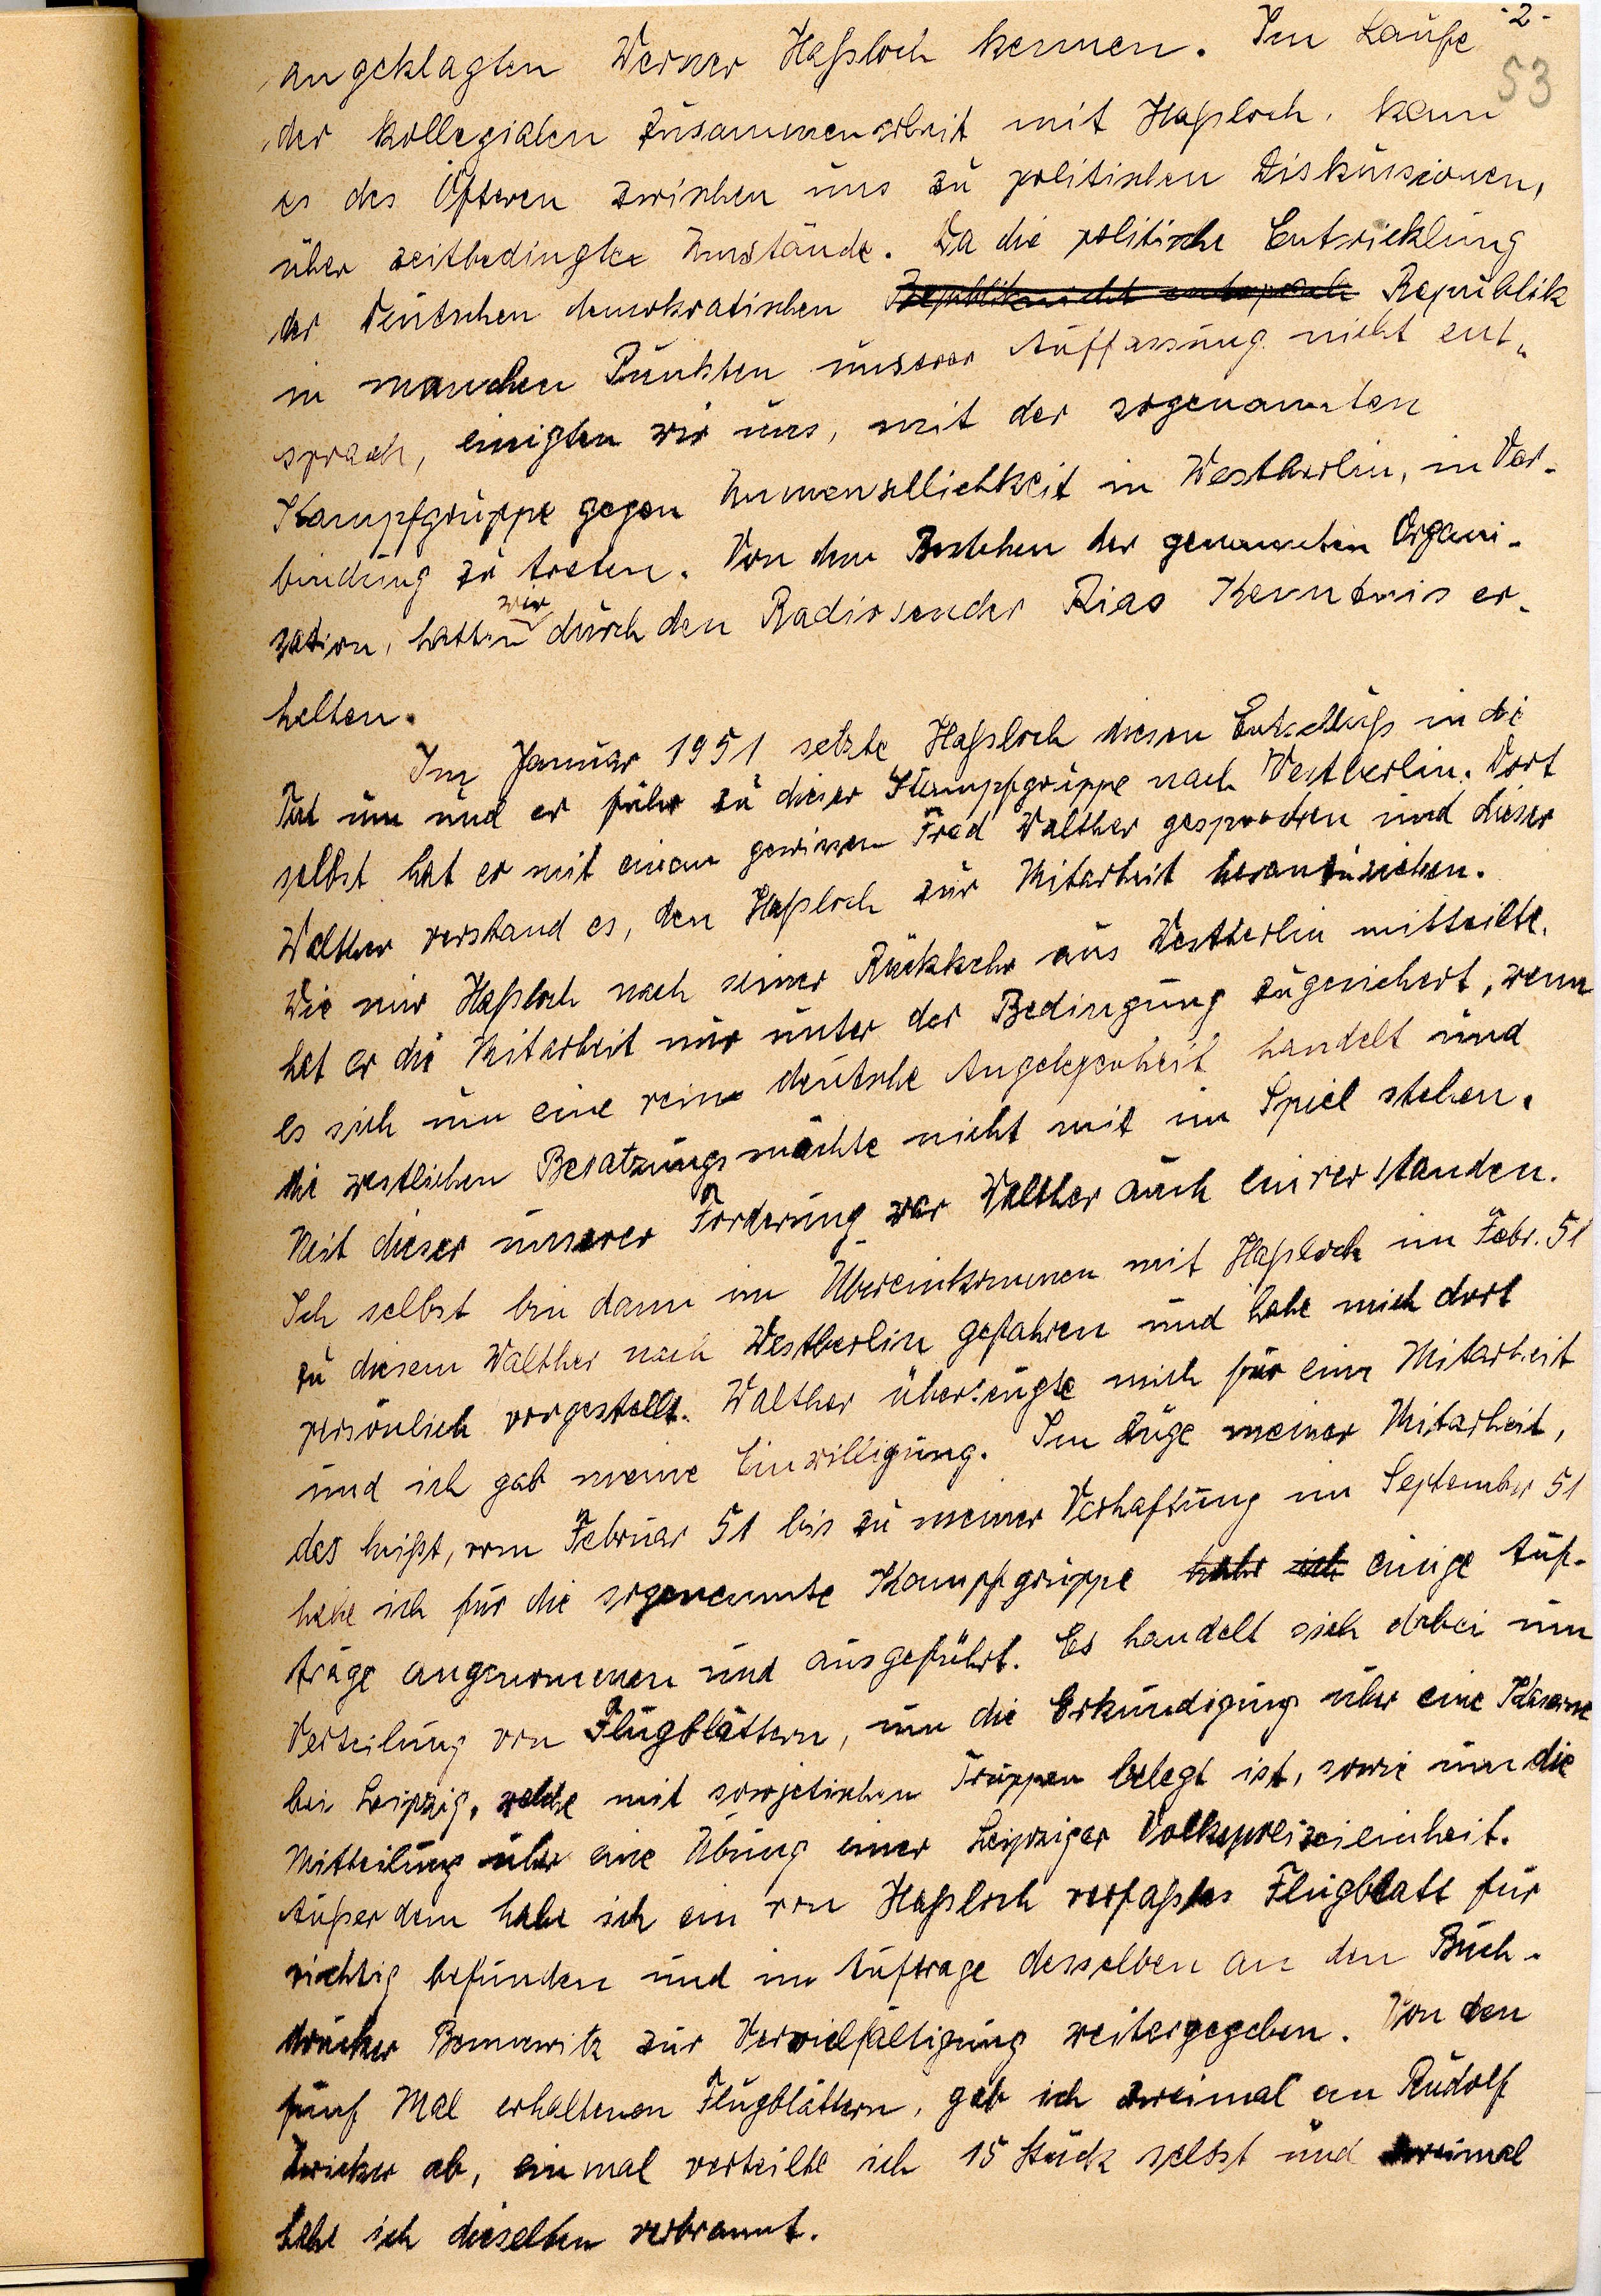 - 2 -
53
angeklagten Werner Haßloch kennen. Im Laufe
der kollegialen Zusammenarbeit mit Haßloch, kam
es des Öfteren zwischen uns zu politischen Diskussionen,
über zeitbedingte Umstände. Da die politische Entwicklung
der Deutschen demokratischen Republik nicht entsprach Republik
in manchen Punkten unserer Auffassung nicht ent-
sprach, einigten wir uns, mit der sogenannten
Kampfgruppe gegen Unmenschlichkeit in Westberlin, in Ver-
bindung zu treten. Von dem Bestehen der genannten Organi-
sation, hatten wir durch den Radiosender Rias Kenntnis er-
halten.
Im Januar 1951 setzte Haßloch diesen Entschluß in die
Tat um und er fuhr zu dieser Kampfgruppe nach Westberlin. Dort
selbst hat er mit einem gewissen Fred Walther gesprochen und dieser
Walther verstand es, den Haßloch zur Mitarbeit heranzuziehen.
Wie mir Haßloch nach seiner Rückkehr aus Westberlin mitteilte,
hat er die Mitarbeit nur unter der Bedingung zugesichert, wenn
es sich um eine reine deutsche Angelegenheit handelt und
die westlichen Besatzungsmächte nicht mit im Spiel stehen.
Mit dieser unserer Forderung war Walther auch einverstanden.
Ich selbst bin dann im Übereinkommen mit Haßloch im Febr. 51
zu diesem Walther nach Westberlin gefahren und habe mich dort
persönlich vorgestellt. Walther überzeugte mich für eine Mitarbeit
und ich gab meine Einwilligung. Im Zuge meiner Mitarbeit,
das heißt, vom Februar 51 bis zu meiner Verhaftung im September 51
habe ich für die sogenannte Kampfgruppe habe ich einige Auf-
träge angenommen und ausgeführt. Es handelt sich dabei um
Verteilung von Flugblättern, um die Erkundigung über eine Kaserne
bei Leipzig, welche mit sowjetischen Truppen belegt ist, sowie um die
Mitteilung über eine Übung einer Leipziger Volkspolizeieinheit.
Außerdem habe ich ein von Haßloch verfaßtes Flugblatt für
richtig befunden und im Auftrage desselben an den Buch-
drucker zur Vervielfältigung weitergegeben. Von den
fünf Mal erhaltenen Flugblättern, gab ich zweimal an Rudolf
ab, einmal verteilte ich 15 Stück selbst und zweimal
habe ich dieselben verbrannt.